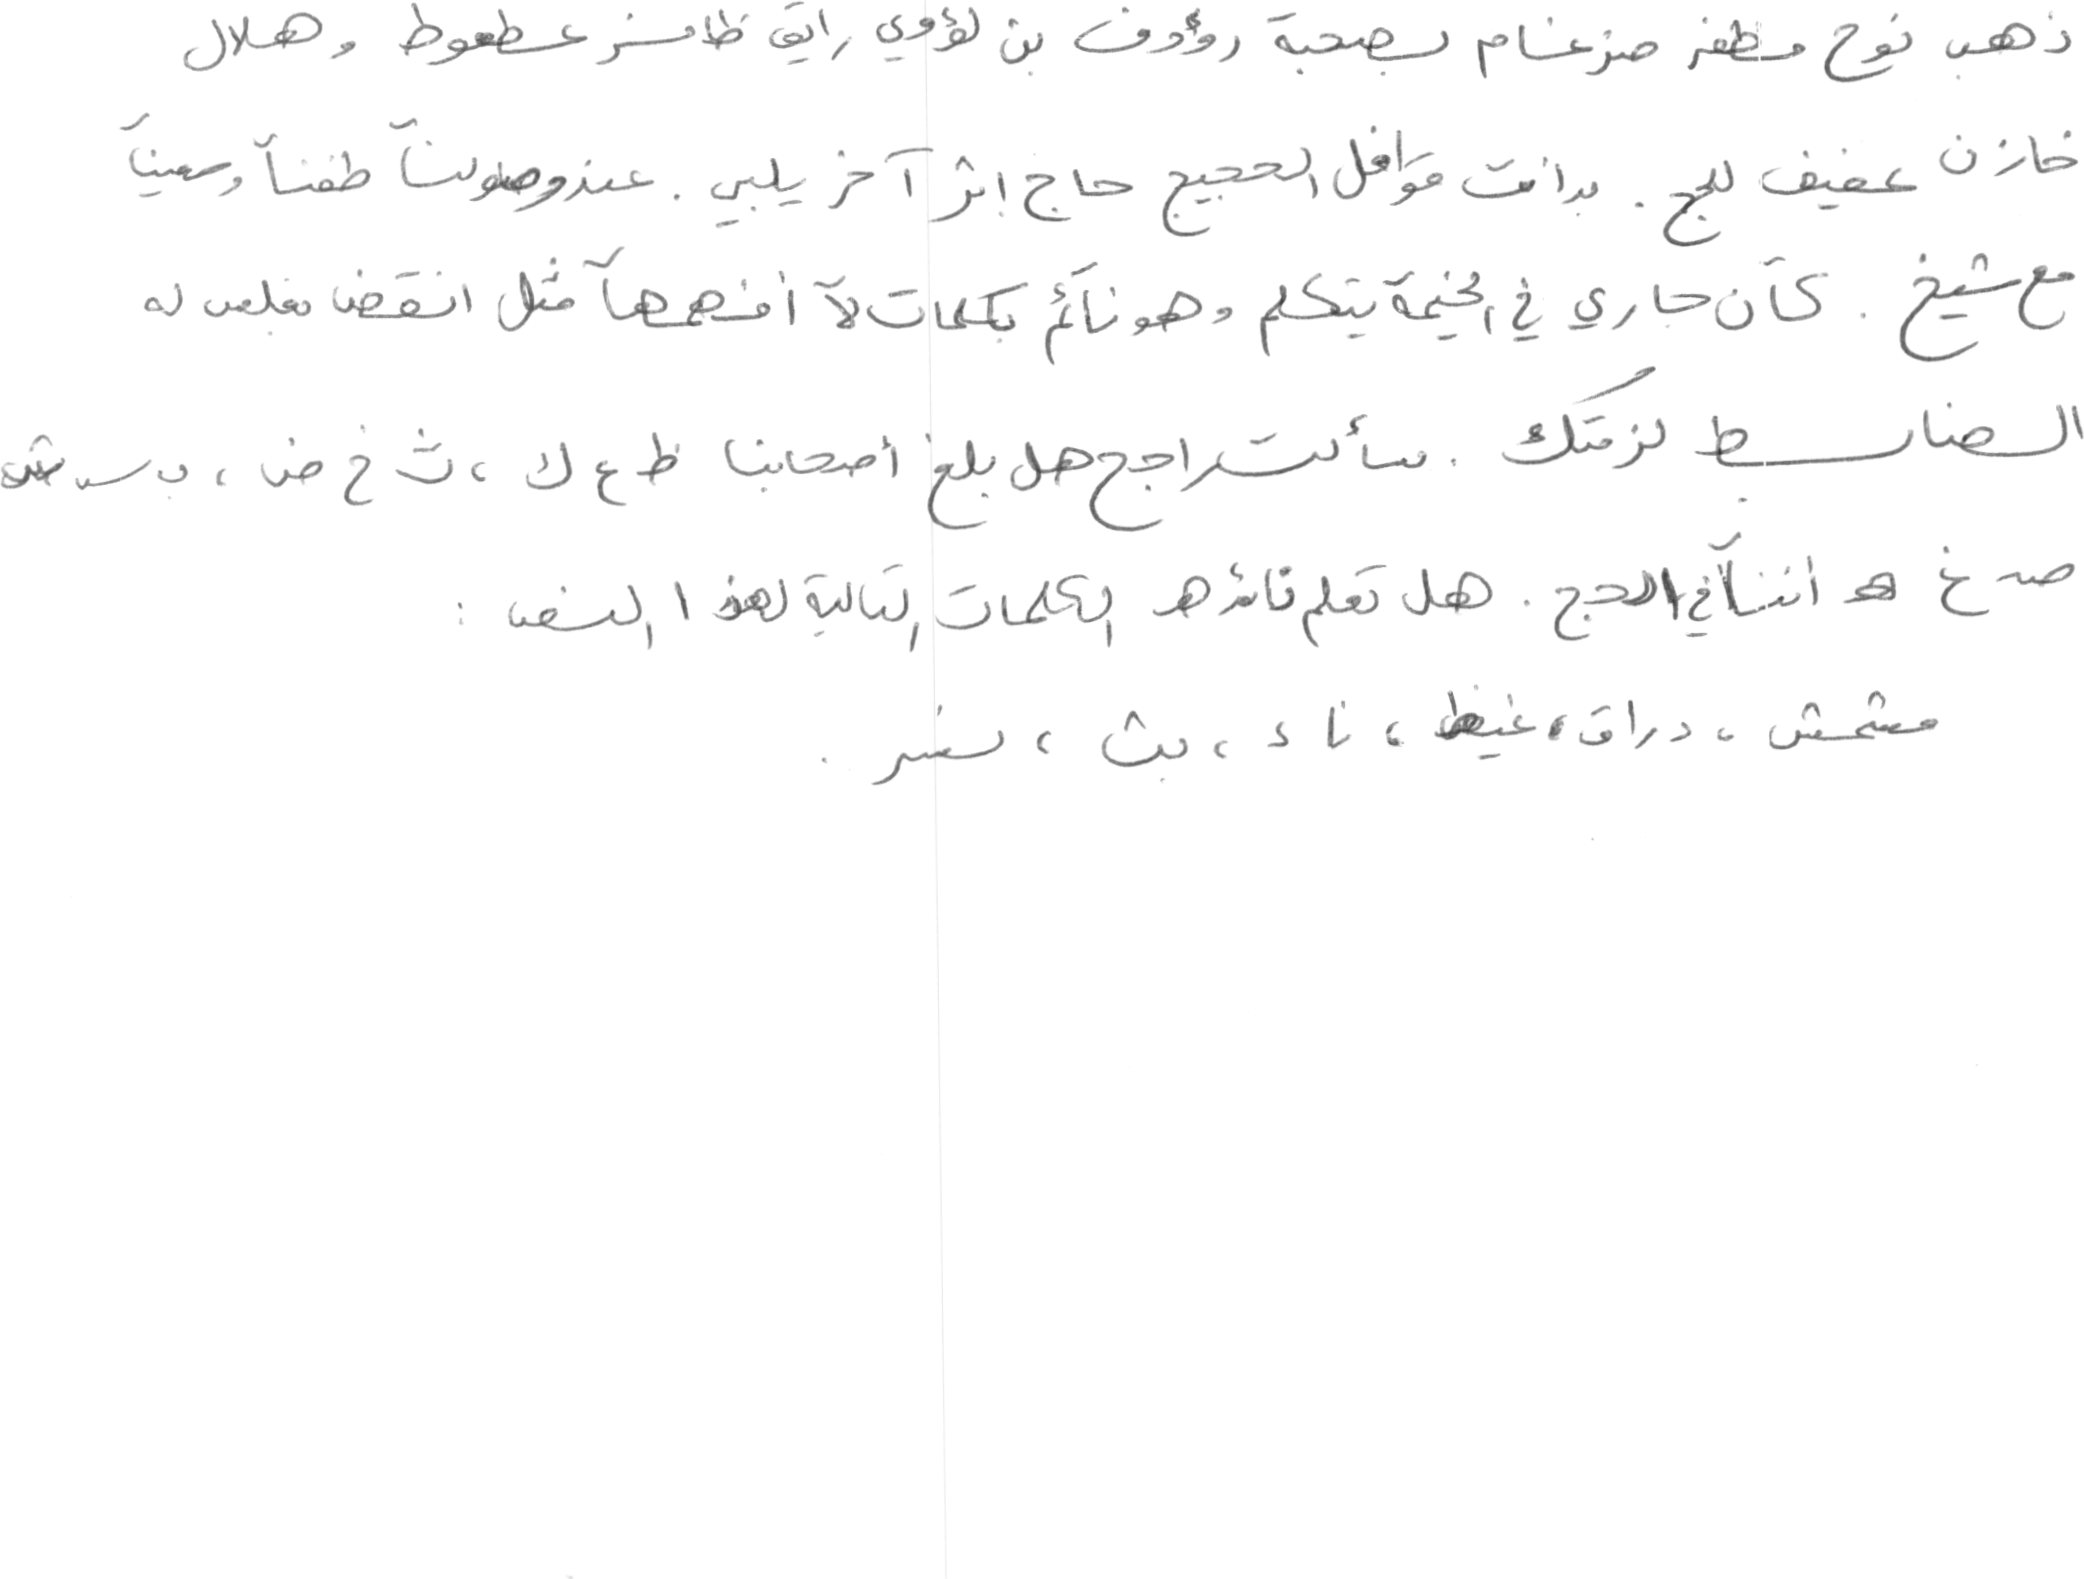 ذهب نوح مظفر ضرغام بصحبة رؤوف بن لؤي راتق ظافر عطعوط وهلال
خازن عفيف للحج . بدأت قوافل الحجيج حاج إثر آخر يلبي . عند وصولنا طفنا وسعينا
مع شيخ . كان جاري في الخيمة يتكلم وهو نائم بكلمات لا أفهمها مثل انقض مغلس له
الضابط لزمتك . سألت راجح هل بلغ أصحابنا ظ ع ك ، ث خ ض ، ب س ش
ص غ هـ أننا في الحج . هل تعلم قائد هـ الكلمات التالية لهذا النص :
مشمش ، دراق ، غيظ ، ناء ، بث ، نسر .